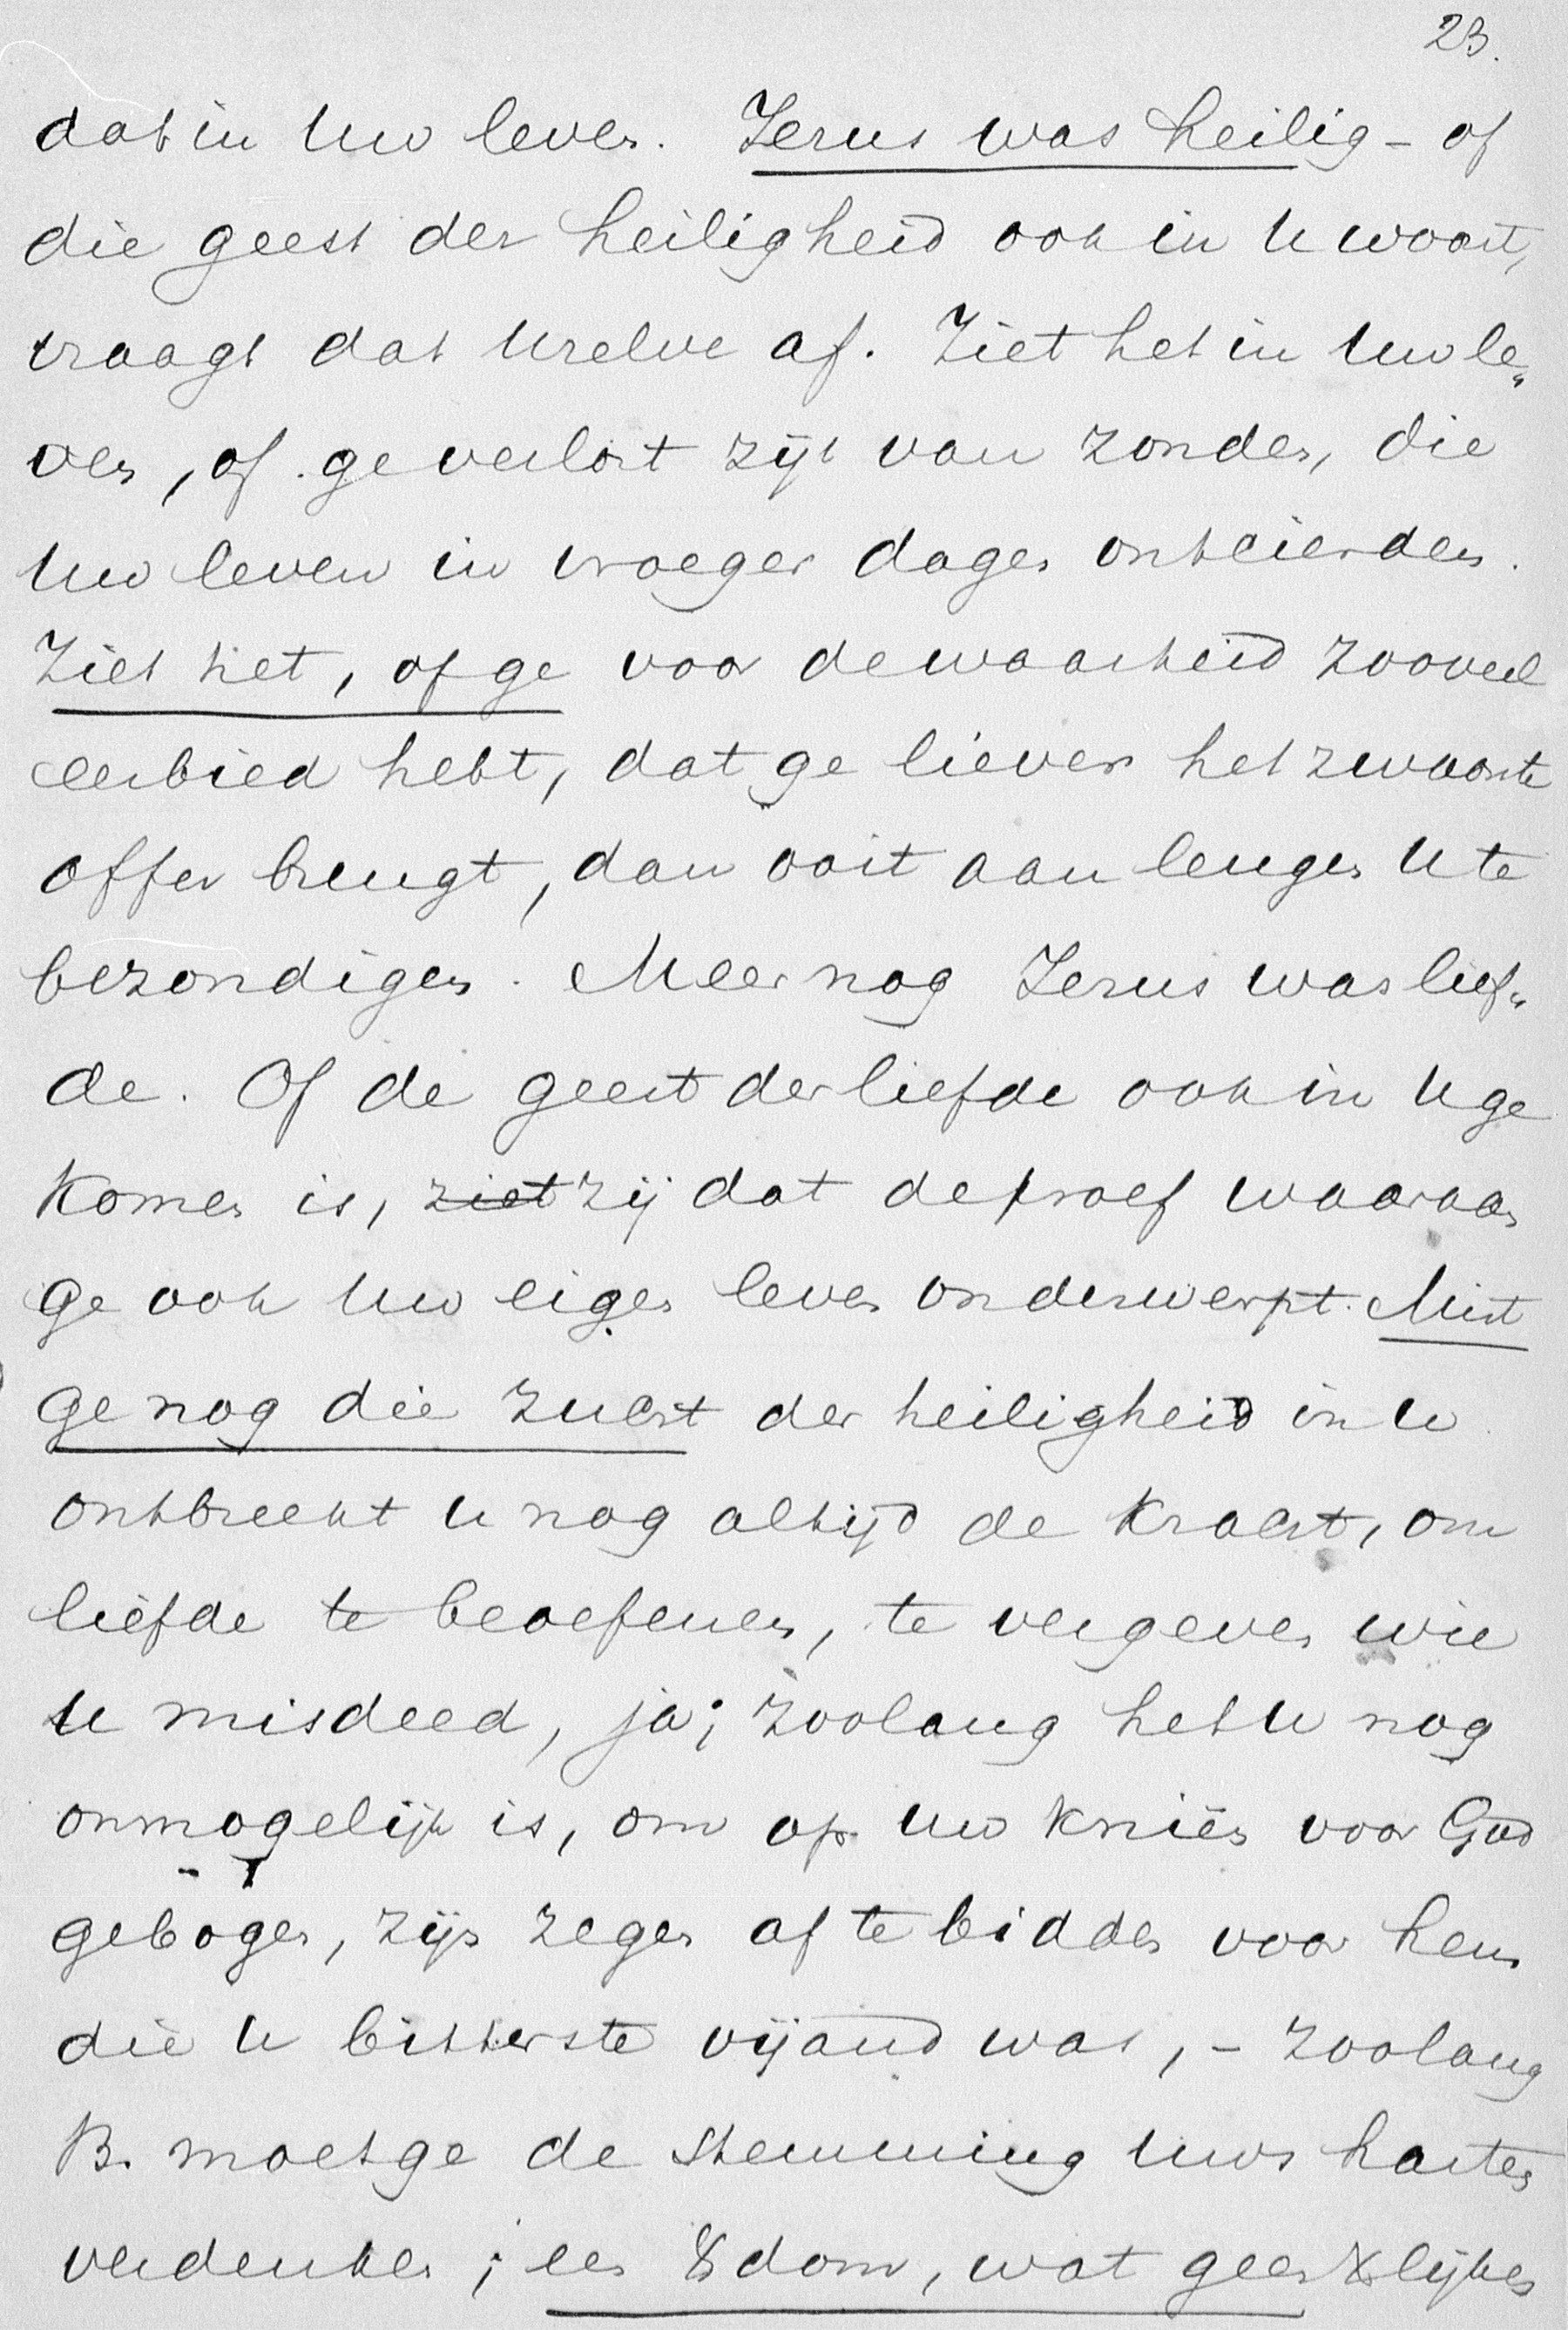 23.
dat in Uw leven. Jezus was heilig - of
die geest der heiligheid ook in U woont,
vraagt dat Uzelve af. Ziet het in Uw le„
ven, of ge verlost zijt van zonden, die
Uw leven in vroeger dagen ontcierden.
Ziet het, of ge voor de waarheid zooveel
eerbied hebt, dat ge liever het zwaarste
offer brengt, dan ooit aan leugen U te
bezondigen. Meer nog Jezus was lief„
de. Of de geest der liefde ook in U ge
komen is, ziet zij dat de proef waaraan
ge ook Uw eigen leven onderwerpt. Mist
ge nog die zucht der heiligheid in U
ontbreekt U nog altijd de kracht, om
liefde te beoefenen, te vergeven wie
U misdeed, ja; zoolang het U nog
onmogelijk is, om op Uw knieën voor God
gebogen, zijn zegen af te bidden voor hem
die U bitterste vijand was, - zoolang
B. moet ge de stemming Uws harten
verdenken; een dom, wat geestlijken